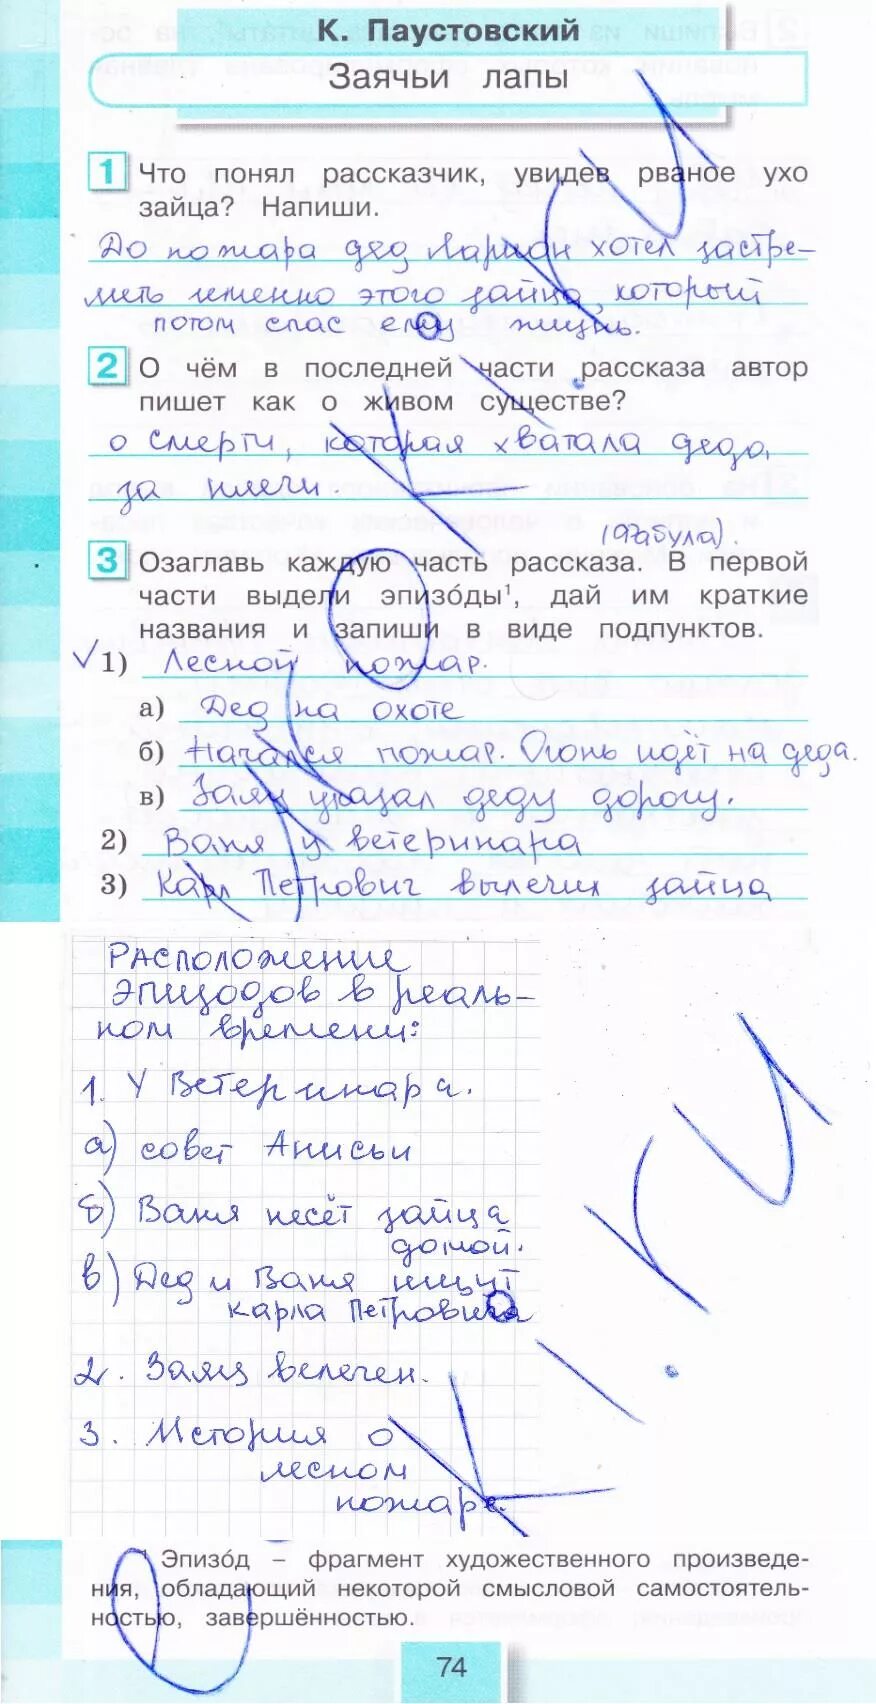 К. Паустовский
Заячьи лапы
1 Что понял рассказчик, увидев рваное ухо
зайца? Напиши.
До пожара дед Ларион хотел застре-
лить именно этого зайца, который
потом спас ему жизнь.
2 О чём в последней части рассказа автор
пишет как о живом существе?
о смерти, которая хватала деда
за плечи.
(Фабула).
3 Озаглавь каждую часть рассказа. В первой
части выдели эпизо́ды¹, дай им краткие
названия и запиши в виде подпунктов.
1) Лесной пожар.
а) Дед на охоте
б) Начался пожар. Огонь идёт на деда.
в) Заяц указал деду дорогу.
2) Ваня у ветеринара
3) Карл Петрович вылечил зайца
Расположение
эпизодов в реаль-
ном времени:
1. У Ветеринара.
а) совет Анисьи
б) Ваня несёт зайца
домой.
в) Дед и Ваня ищут
Карла Петровича
2. Заяц вылечен.
3. История о
лесном
пожаре.
¹ Эпизо́д – фрагмент художественного произведе-
ния, обладающий некоторой смысловой самостоятель-
ностью, завершённостью.
74